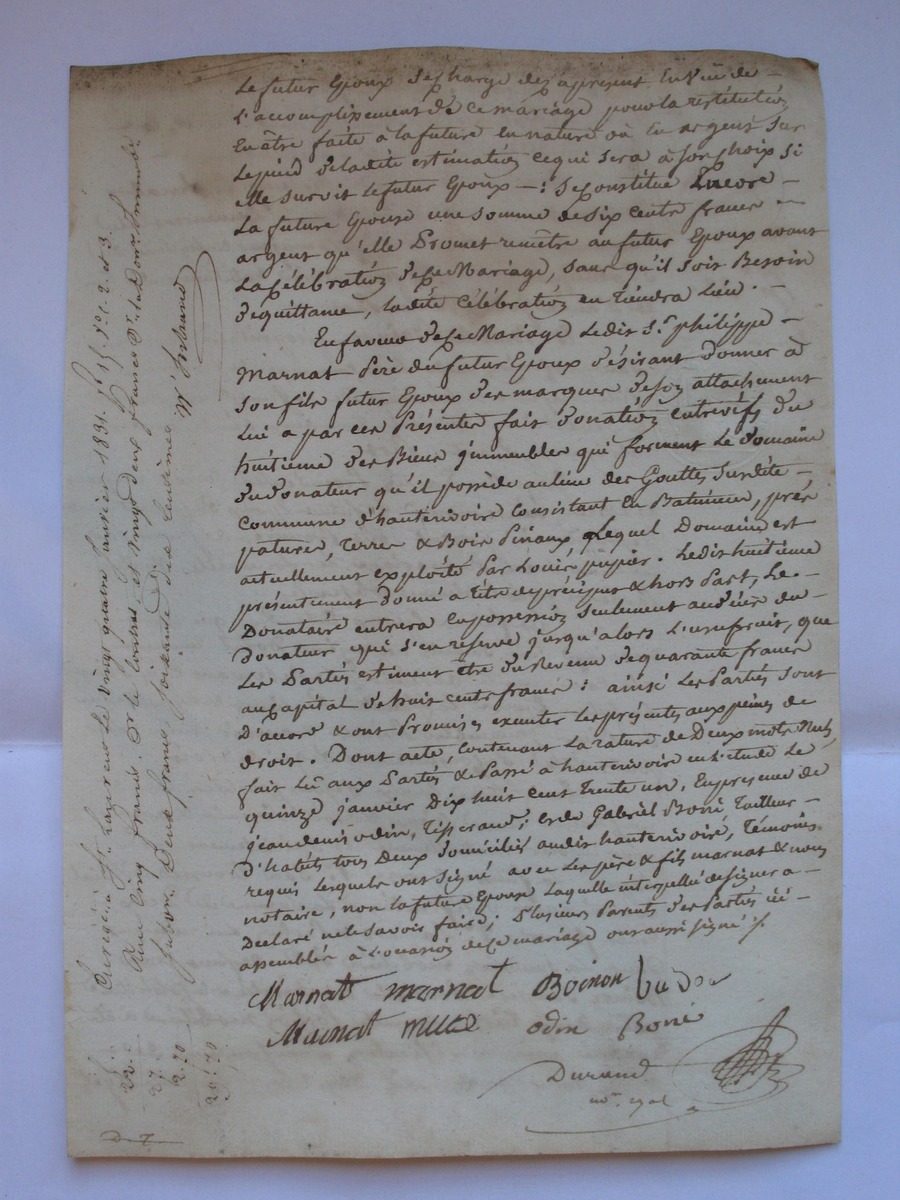 Le futur Epoux se charge dez apresent En Vüe de
L'accomplissement de ce mariage pour la restitution
En être faite à la future En nature où En argent sur
Le pied de ladite estimation ce qui sera à son choix si
elle survit le futur Epoux : se Constitue Encore
La future Epouse une somme de six cents francs
argent qu'elle Promet remêtre au futur Epoux avant
La Célébration de ce Mariage, sans qu'il soit Besoin
de quittance, ladite Célébration en tiendra Lieu.
En faveur de ce Mariage Ledit Sr. philippe
Marnat Père du futur Epoux désirant donner à
son fils futur Epoux des marques de son attachement
Lui a par ces Présentes fait donation entrevifs du
huitième des Biens jmmeubles qui forment Le domaine
du donateur qu'il possède au lieu des Gouttes susdite
Commune d'hauterivoire Consistant En Batimens, prés
patures, terres & Bois Pinaux, Lequel Domaine est
actuellement exploité Par Louis pupier. Ledit huitième
présentement donné a titre de préciput & hors Part, Le
Donataire entrera En possession seulement au décès du
Donateur qui s'en reserve jusqu'alors L'usufruit, que
Les Parties estiment être du Revenu de quarante francs
au Capital de huit cents francs : ainsi Les Parties sont
D'accord & ont Promis executer les présentes aux peines de
droit. Dont acte, Contenant La rature de Deux mots Nuls,
fait Lû aux Parties & Passé à hauterivoire en L'etude Le
quinze janvier Dix huit cent trente un, En presence de
jean denis odin, Tisserand, et de Gabriel Boni, Tailleur
D'habits tous Deux domiciliés audit hauterivoire, Témoins
requis Lesquels ont signé avec Les père & fils marnat & nous
notaire, non La future Epouse Laquelle interpellée de signer a
Declaré ne le savoir faire; Plusieurs Parents des Parties ici
assemblés à L'occasion de ce mariage ont aussi signé
Marnat marnat Boinon
Marnat odin Boni
Durand
Enregistré à St. Laurent Le vingt quatre janvier 1831. 2. et 3.
Reçu Cinq francs. Pr. le Contrat et vingt deux francs Pr. la Don.
Subvon. Deux francs soixante dix Centimes
22.
27.
2.70
29.70